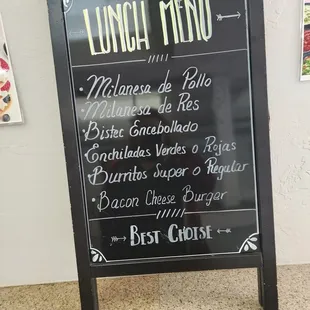 LUNCH MENU
• Milanesa de Pollo
• Milanesa de Res
• Bistec Encebollado
Enchiladas Verdes o Rojas
• Burritos Super o Regular
• Bacon Cheese Burger
BEST CHOISE